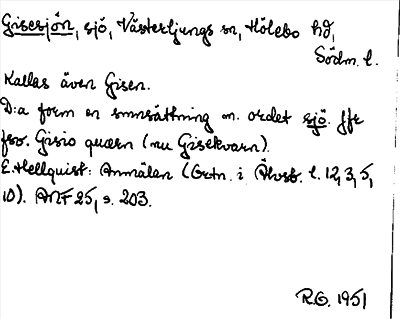 Gisesjön, sjö, Västerljungs sn, Hölebo hd,
Södm. l.
Kallas även Gisen.
D:a form en smnsättning m. ordet sjö. Jfr
fsv. Gisio quærn (nu Gisekvarn).
E. Hellquist: Anmälan (Ortn. i Älvsb. l. 12, 3, 5,
10). ANF 25, s. 203.
R.G. 1951